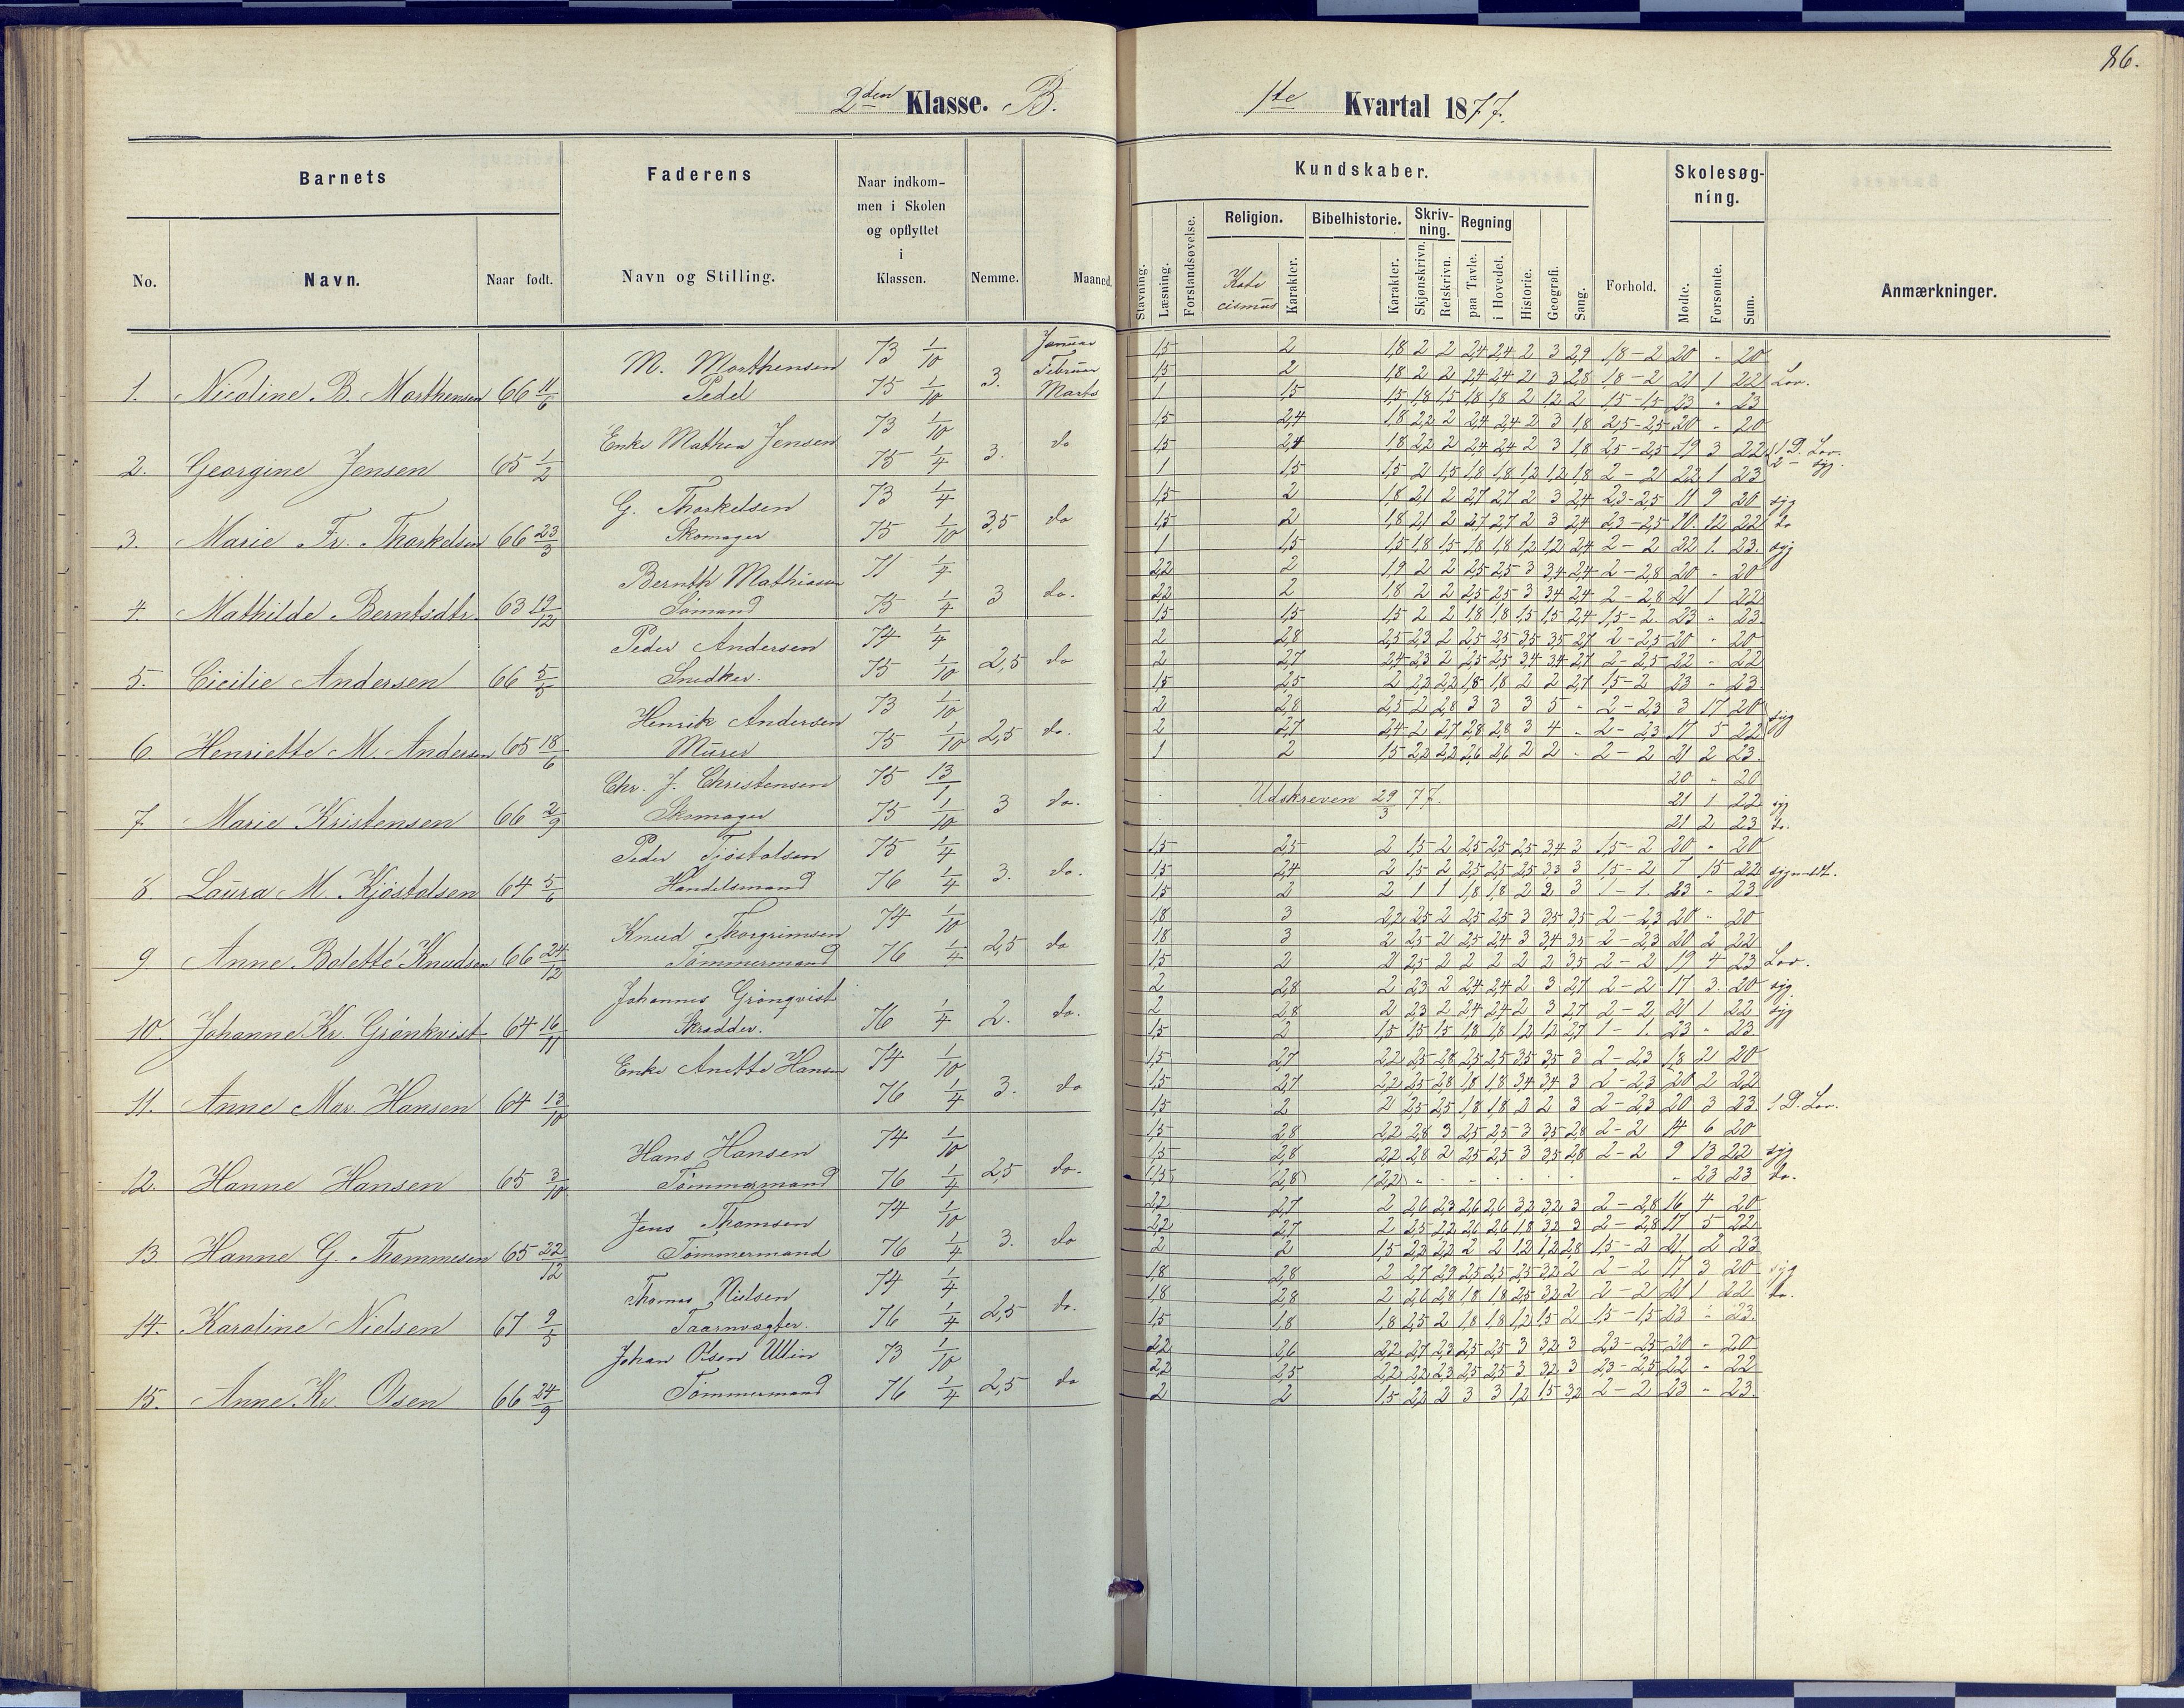 86.
2den Klasse. B.
1ste Kvartal 1877.
Barnets
Faderens
Naar indkom-
men i Skolen
og opflyttet
i
Klassen.
Nemme.
Maaned.
No.
Navn.
Naar født.
Navn og Stilling.
Kundskaber.
Stavning.
Læsning.
Forstandsøvelse.
Religion.
Kate
cismus
Karakter.
Bibelhistorie.
Karakter.
Skriv-
ning.
Skjønskrivn.
Retskrivn.
Regning
paa Tavle.
i Hovedet.
Historie.
Geografi.
Sang.
Forhold.
Skolesøg-
ning.
Mødte.
Forsømte.
Sum.
Anmærkninger.
M. Morthensen 73 1/10 Januar 1,5 2 1,8 2 2 2,4 2,4 2 3 2,9 1,8-2 20 " 20
1. Nicoline B. Morthensen 66 11/6 Pedel 75 1/10 3. Februar 1,5 2 1,8 2 2 2,4 2,4 2 3 2,8 1,8-2 21 1 22 Lov.
Marts 1 1,5 1,5 1,8 1,5 1,8 1,8 2 1,2 2 1,5-1,5 23 " 23
Enke Mathea Jensen 73 1/10 do 1,5 2,4 1,8 2,2 2 2,4 2,4 2 3 1,8 2,5-2,5 20 " 20
2. Georgine Jensen 65 1/2 75 1/4 3. 1,5 2,4 1,8 2,2 2 2,4 2,4 2 3 1,8 2,5-2,5 19 3 22 1 D. Lov.
1 1,5 1,5 2 1,5 1,8 1,8 1,2 1,2 1,8 2-2 22 1 23 2 - syg.
G. Thorkelsen 73 1/4 1,5 2 1,8 2,1 2 2,7 2,7 2 3 2,4 2,3-2,5 11 9 20 syg
3. Marie Fr. Thorkelsen 66 23/3 Skomager 75 1/10 3,5 do 1,5 2 1,8 2,1 2 2,7 2,7 2 3 2,4 2,3-2,5 10. 12 22 do
1 1,5 1,5 1,8 1,5 1,8 1,8 1,2 1,2 2,4 2-2 22 1. 23. syg
Bernth Mathiasen 71 1/4 2,2 2 1,9 2 2 2,5 2,5 3 3,4 2,4 2-2,8 20 " 20
4. Mathilde Berntsdtr. 63 19/12 Sømand 75 1/4 3 do. 2,2 2 1,8 2 2 2,5 2,5 3 3,4 2,4 2-2,8 21 1 22
1,5 1,5 1,5 2 2 1,8 1,8 1,5 1,5 2,4 1,5-2. 23 " 23.
Peder Andersen 74 1/4 2 2,8 2,5 2,3 2 2,5 2,5 3,5 3,5 2,7 2-2,5 20 " 20
5. Cicilie Andersen 66 5/5 Snedker. 75 1/10 2,5 do 2 2,7 2,4 2,3 2 2,5 2,5 3,4 3,4 2,7 2-2,5 22 " 22
1,5 2,5 2 2,2 2,2 1,8 1,8 2 2 2,7 1,5-2 23 " 23.
Henrik Andersen 73 1/10 2 2,8 2,5 2 2,8 3 3 3 5 " 2-2,3 3 17 20 syg
6. Henriette M. Andersen 65 18/6 Murer 75 1/10 2,5 do. 2 2,7 2,4 2 2,7 2,8 2,8 3 4 " 2-2,3 17 5 22
1 2 1,5 2,2 2,2 2,6 2,6 2 2 " 2-2 21 2 23.
Chr. J. Christensen 75 13/1 20 " 20
7. Marie Kristensen 66 2/9 Skomager 75 1/10 3 do. Udskreven 29/3 77. 21 1 22 syg
21 2 23 do.
Peder Tjøstolsen 75 1/4 1,5 2,5 2 1,5 2 2,5 2,5 2,5 3,4 3 1,5-2 20 " 20
8. Laura M. Kjøstolsen 64 5/6 Handelsmand 76 1/4 3. do. 1,5 2,4 2 1,5 2 2,5 2,5 2,5 3,3 3 1,5-2 7 15 22
1,5 2 2 1 1 1,8 1,8 2 2 3 1-1. 23 " 23
Knud Thorgrimsen 74 1/10 1,8 3 2,2 2,5 2 2,5 2,5 3 3,5 3,5 2-2,3 20 " 20
9. Anne Bolette Knudsen 66 24/12 Tømmermand 76 1/4 2,5 do 1,8 3 2 2,5 2 2,5 2,4 3 3,4 3,5 2-2,3 20 2 22
1,5 2 2 2,5 2 2 2 2 2 3,5 2-2 19 4 23 Lov.
Johannes Grønqvist 2 2,8 2 2,3 2 2,4 2,4 2 3 2,7 2-2 17 3. 20 syg
10. Johanne Kr. Grønkvist 64 16/11 Skrædder. 76 1/4 2. do. 2 2,8 2 2,3 2 2,4 2,4 2 3 2,7 2-2 21 1 22 syg
1,5 2 1,5 1,5 1,5 1,8 1,8 1,2 1,2 2,7 1-1. 23 " 23
Enke Anette Hansen 74 1/10 1,5 2,7 2,2 2,5 2,8 2,5 2,5 3,5 3,5 3 2-2,3 18 2 20
11. Anne Mar. Hansen 64 13/10 76 1/4 3. do 1,5 2,7 2,2 2,5 2,8 1,8 1,8 3,4 3,4 3 2-2,3 20 2 22
1,5 2 2 2,5 2,5 1,8 1,8 2 2 3 2-2,3 20 3 23. 1 D. Lov.
Hans Hansen 74 1/10 1,5 2,8 2,2 2,8 3 2,5 2,5 3 3,5 2,8 2-2 14 6 20
12. Hanne Hansen 65 3/10 Tømmermand 76 1/4 2,5 do. 1,5 2,8 2,2 2,8 2 2,5 2,5 3 3,5 2,8 2-2 9 13 22 syg
(1,5) (2,8) (2,2) " 23 23 do.
Jens Thomsen 74 1/10 2,2 2,7 2 2,6 2,3 2,6 2,6 3,2 3,2 3 2-2,8 16 4 20
13. Hanne G. Thommesen 65 22/12 Tømmermand 76 1/4 3. do 2,2 2,7 2 2,5 2,2 2,6 2,6 1,8 3,2 3 2-2,8 17 5 22
2 2 1,5 2,2 2,2 2 2 1,2 1,2 2,8 1,5-2 21 2 23
Thomas Nielsen 74 1/4 1,8 2,8 2 2,7 2,9 2,5 2,5 2,5 3,2 2 2-2 17 3 20 syg
14. Karoline Nielsen 67 9/5 Taarnvægter. 76 1/4 2,5 do. 1,8 2,8 2 2,6 2,8 1,8 1,8 2,5 3,2 2 2-2 21 1 22 do.
1,5 1,8 1,8 2,5 2 1,8 1,8 1,2 1,5 2 1,5-1,5 23 " 23.
Johan Olsen Ullin 73 1/10 2,2 2,6 2,2 2,7 2,3 2,5 2,5 3 3,2 3 2,3-2,5 20 " 20
15. Anne Kr. Olsen 66 24/9 Tømmermand 76 1/4 2,5 do 2,2 2,5 2,2 2,2 2,3 2,5 2,5 3 3,2 3 2,3-2,5 22 " 22
2 2 1,5 2,2 2 3 3 1,2 1,5 3,2 2-2 23 " 23.